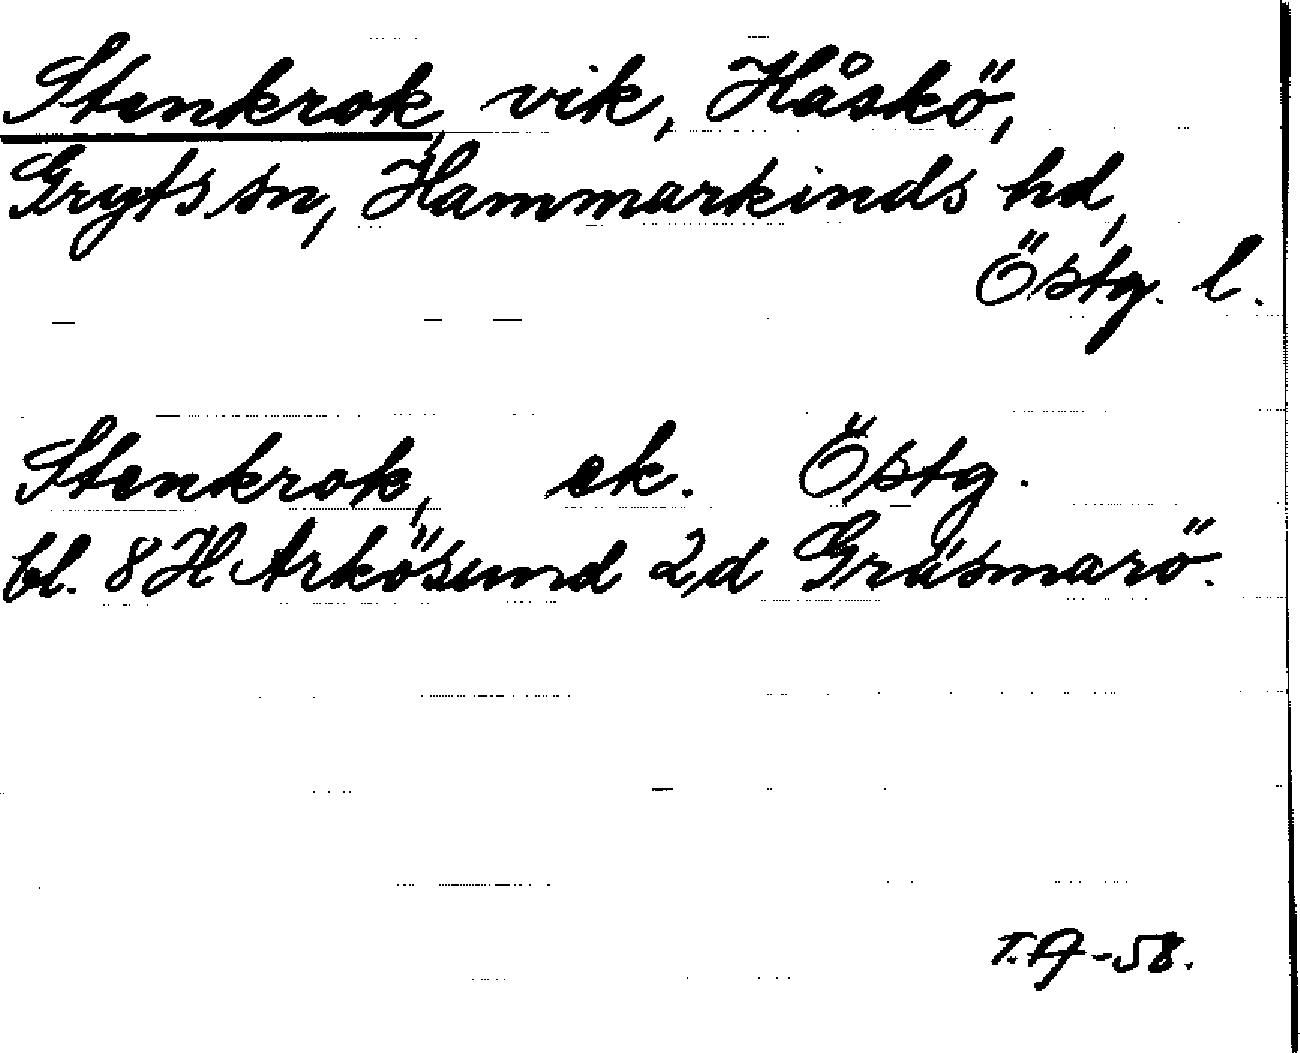 Stenkrok, vik, Håskö,
Gryts sn, Hammarkinds hd,
Östg. l.
Stenkrok, ek. Östg.
bl. 8 H Arkösund 2d Gräsmarö.
T.A-58.